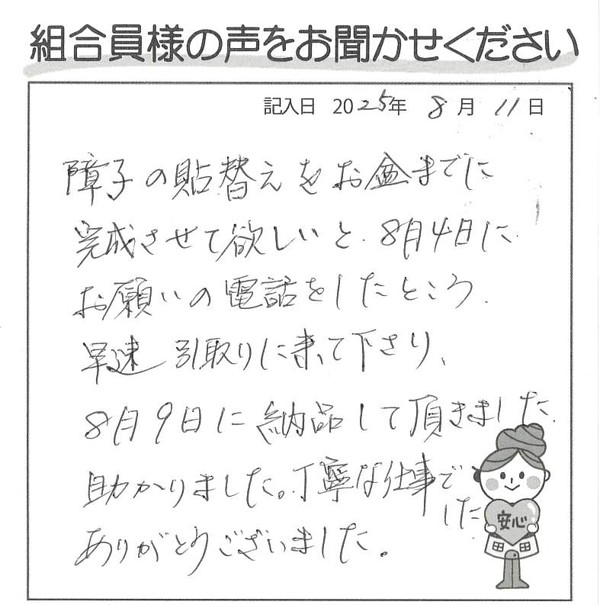 組合員様の声をお聞かせください
記入日 2025年 8月 11日
障子の貼替えをお盆までに
完成させて欲しいと、8月4日に
お願いの電話をしたところ、
早速引取りに来て下さり、
8月9日に納品して頂きました
助かりました。丁寧な仕事で
した
ありがとうございました。
安心